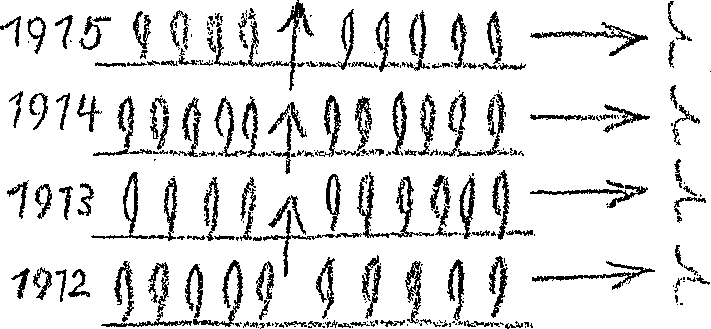 1915
1914
1913
1912